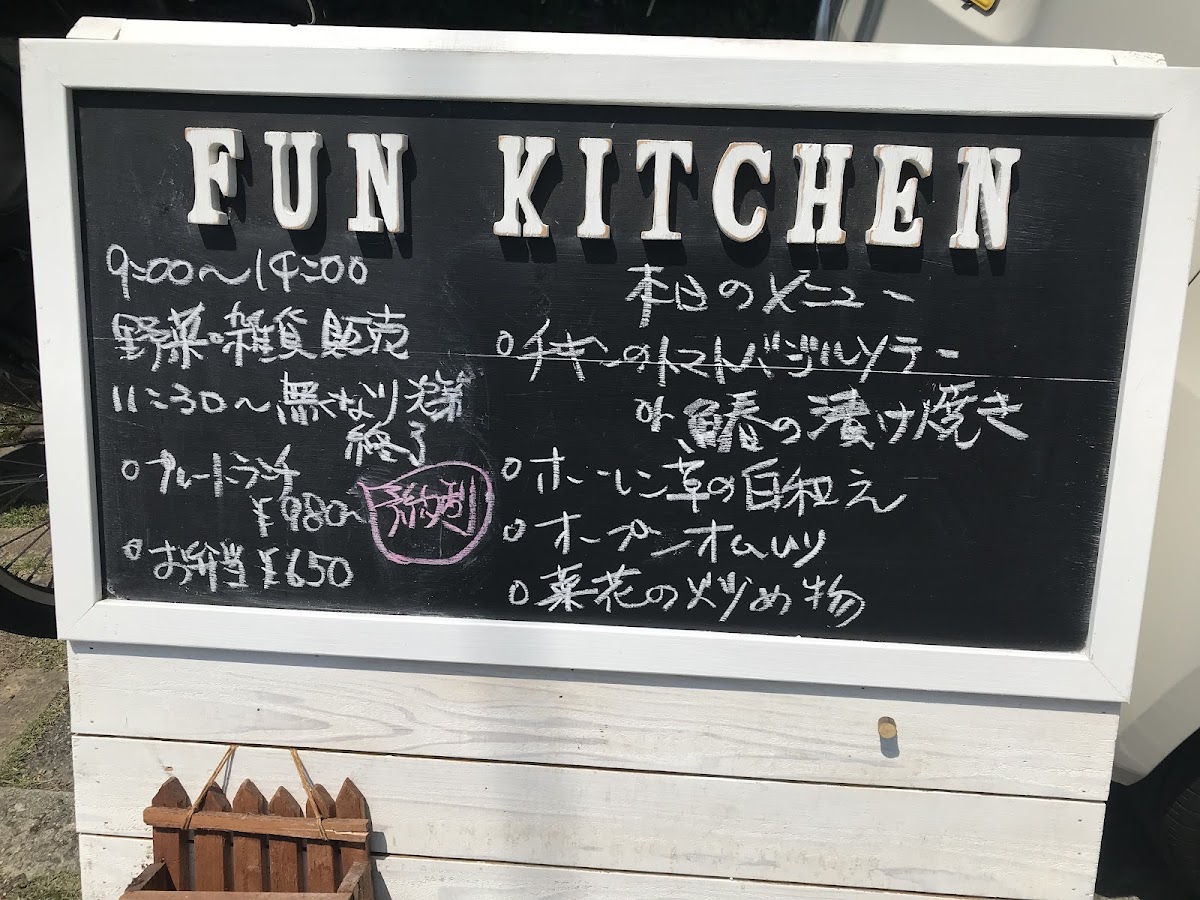 FUN KITCHEN
9:00〜14:00
野菜・雑貨販売
11:30〜無くなり次第
終了
○プレートランチ
¥980〜
予約制
○お弁当¥650
本日のメニュー
○チキンのトマトバジルソテー
or 鰆の漬け焼き
○ホーレン草の白和え
○オープンオムレツ
○菜花の炒め物